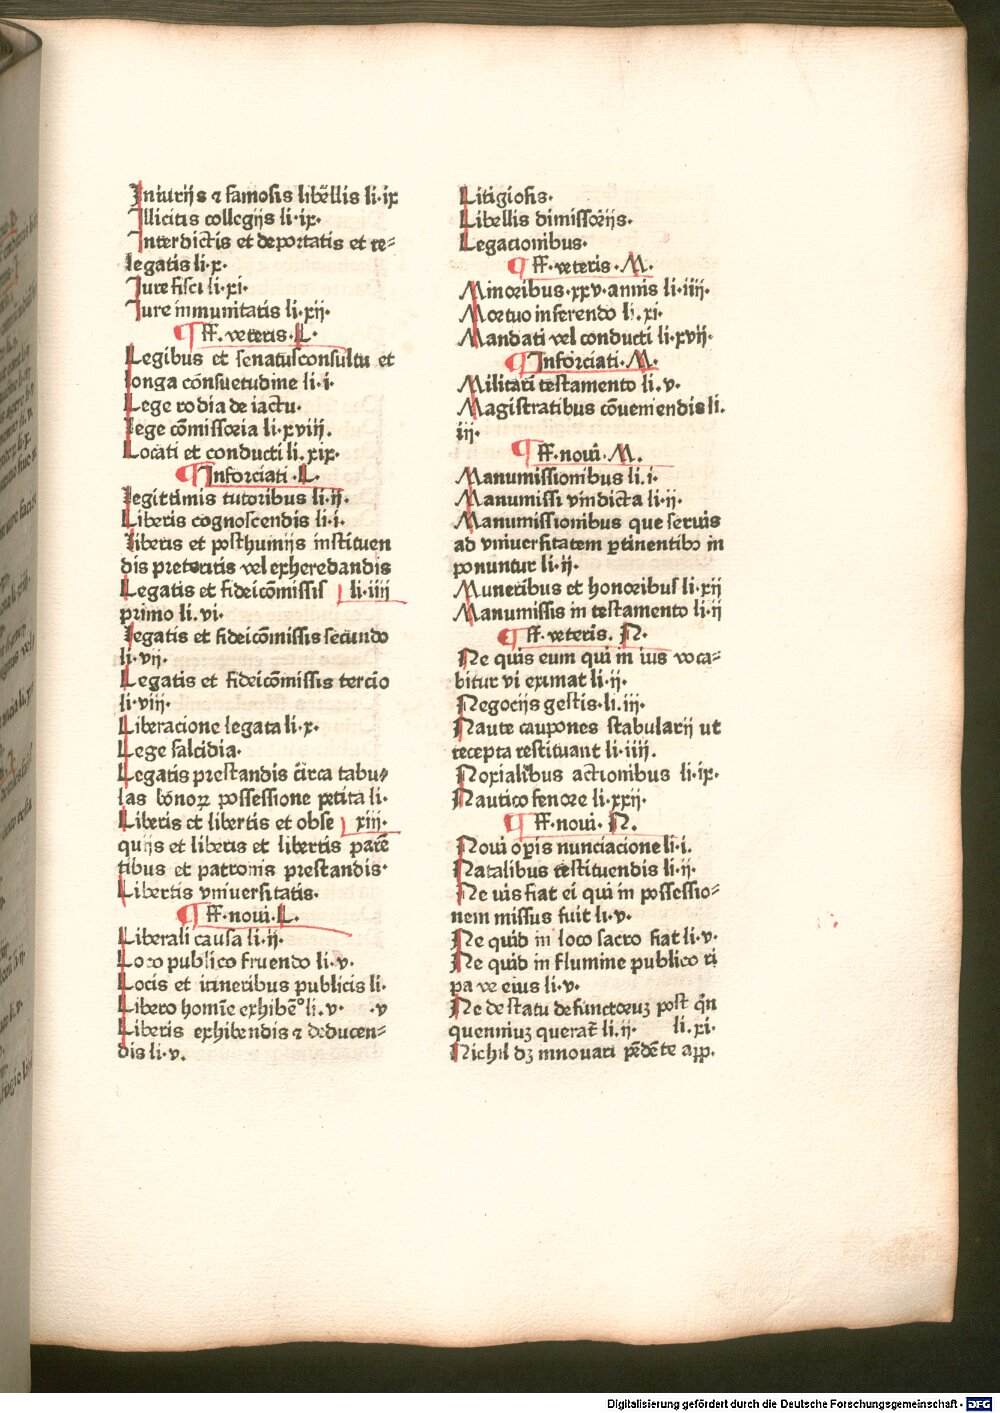 Iniurijs ⁊ famosis libellis li·ix
Illicitis collegijs li·ix·
Interdictis et deportatis et re⸗
legatis li·x·
Iure fisci li·xi·
Iure immunitatis li·xij·
¶ ff·veteris·L·
Legibus et senatusconsultu et
longa cōsuetudine li·i·
Lege rodia de iactu·
lege cōmissoria li·xviij.
Locati et conducti li.xix·
¶ Inforciati·L·
legittimis tutoribus li·ij·
Liberis cognoscendis li·i·
liberis et posthumijs instituen
dis preteritis vel exheredandis
Legatis et fideicōmissis li·iiij
primo li.vi·
legatis et fideicōmissis secundo
li·vij·
Legatis et fideicōmissis tercio
li·viij·
Liberacione legata li·x·
Lege falcidia·
Legatis prestandis circa tabu⸗
las bōnoꝝ possessione petita li·
Liberis et libertis et obse xiij·
quijs et liberis et libertis parē
tibus et patronis prestandis·
Libertis vniuersitatis·
¶ ff·noui·L·
Liberali causa li·ij·
Loco publico fruendo li·v·
Locis et itineribus publicis li·
Libero homīe exhibēº li.v· ·v
Liberis exhibendis ⁊ deducen⸗
dis li·v.
Litigiosis·
Libellis dimissorijs·
Legacionibus·
¶ ff·veteris·M·
Minoribus·xxv·annis li·iiij·
Mortuo inferendo li.xi·
Mandati vel conducti li·xvij·
¶ Inforciati·M·
Militari testamento li.v·
Magistratibus cōueniendis li.
iij·
¶ ff·noui·M.
Manumissionibus li.i·
Manumissi vindicta li·ij·
Manumissionibus que seruis
ad vniuersitatem ꝑtinentibꝫ in
ponuntur li·ij·
Muneribus et honoribus li·xij
Manumissis in testamento li·ij
¶ ff·veteris.N·
Ne quis eum qui in ius voca⸗
bitur vi eximat li·ij·
Negocijs gestis·li.iij·
Naute caupones stabularij ut
recepta restituant li·iiij.
Noxialibus actionibus li·ix·
Nautico fenore li·xxij·
¶ ff·noui·N.
Noui opis nunciacione li·i.
Natalibus restituendis li·ij·
Ne uis fiat ei qui in possessio⸗
nem missus fuit li·v·
Ne quid in loco sacro fiat li·v·
Ne quid in flumine publico ri
pa ve eius li·v·
Ne de statu defunctoruꝫ post qn̄
quenniuꝫ querat̄ li.ij· li.xi·
Nichil dꝫ innouari pēdēte aꝑꝑ.
Digitalisierung gefördert durch die Deutsche Forschungsgemeinschaft - DFG